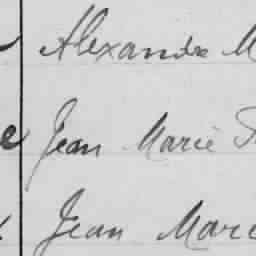 Alexandre M
Jean Marie
Jean Marie